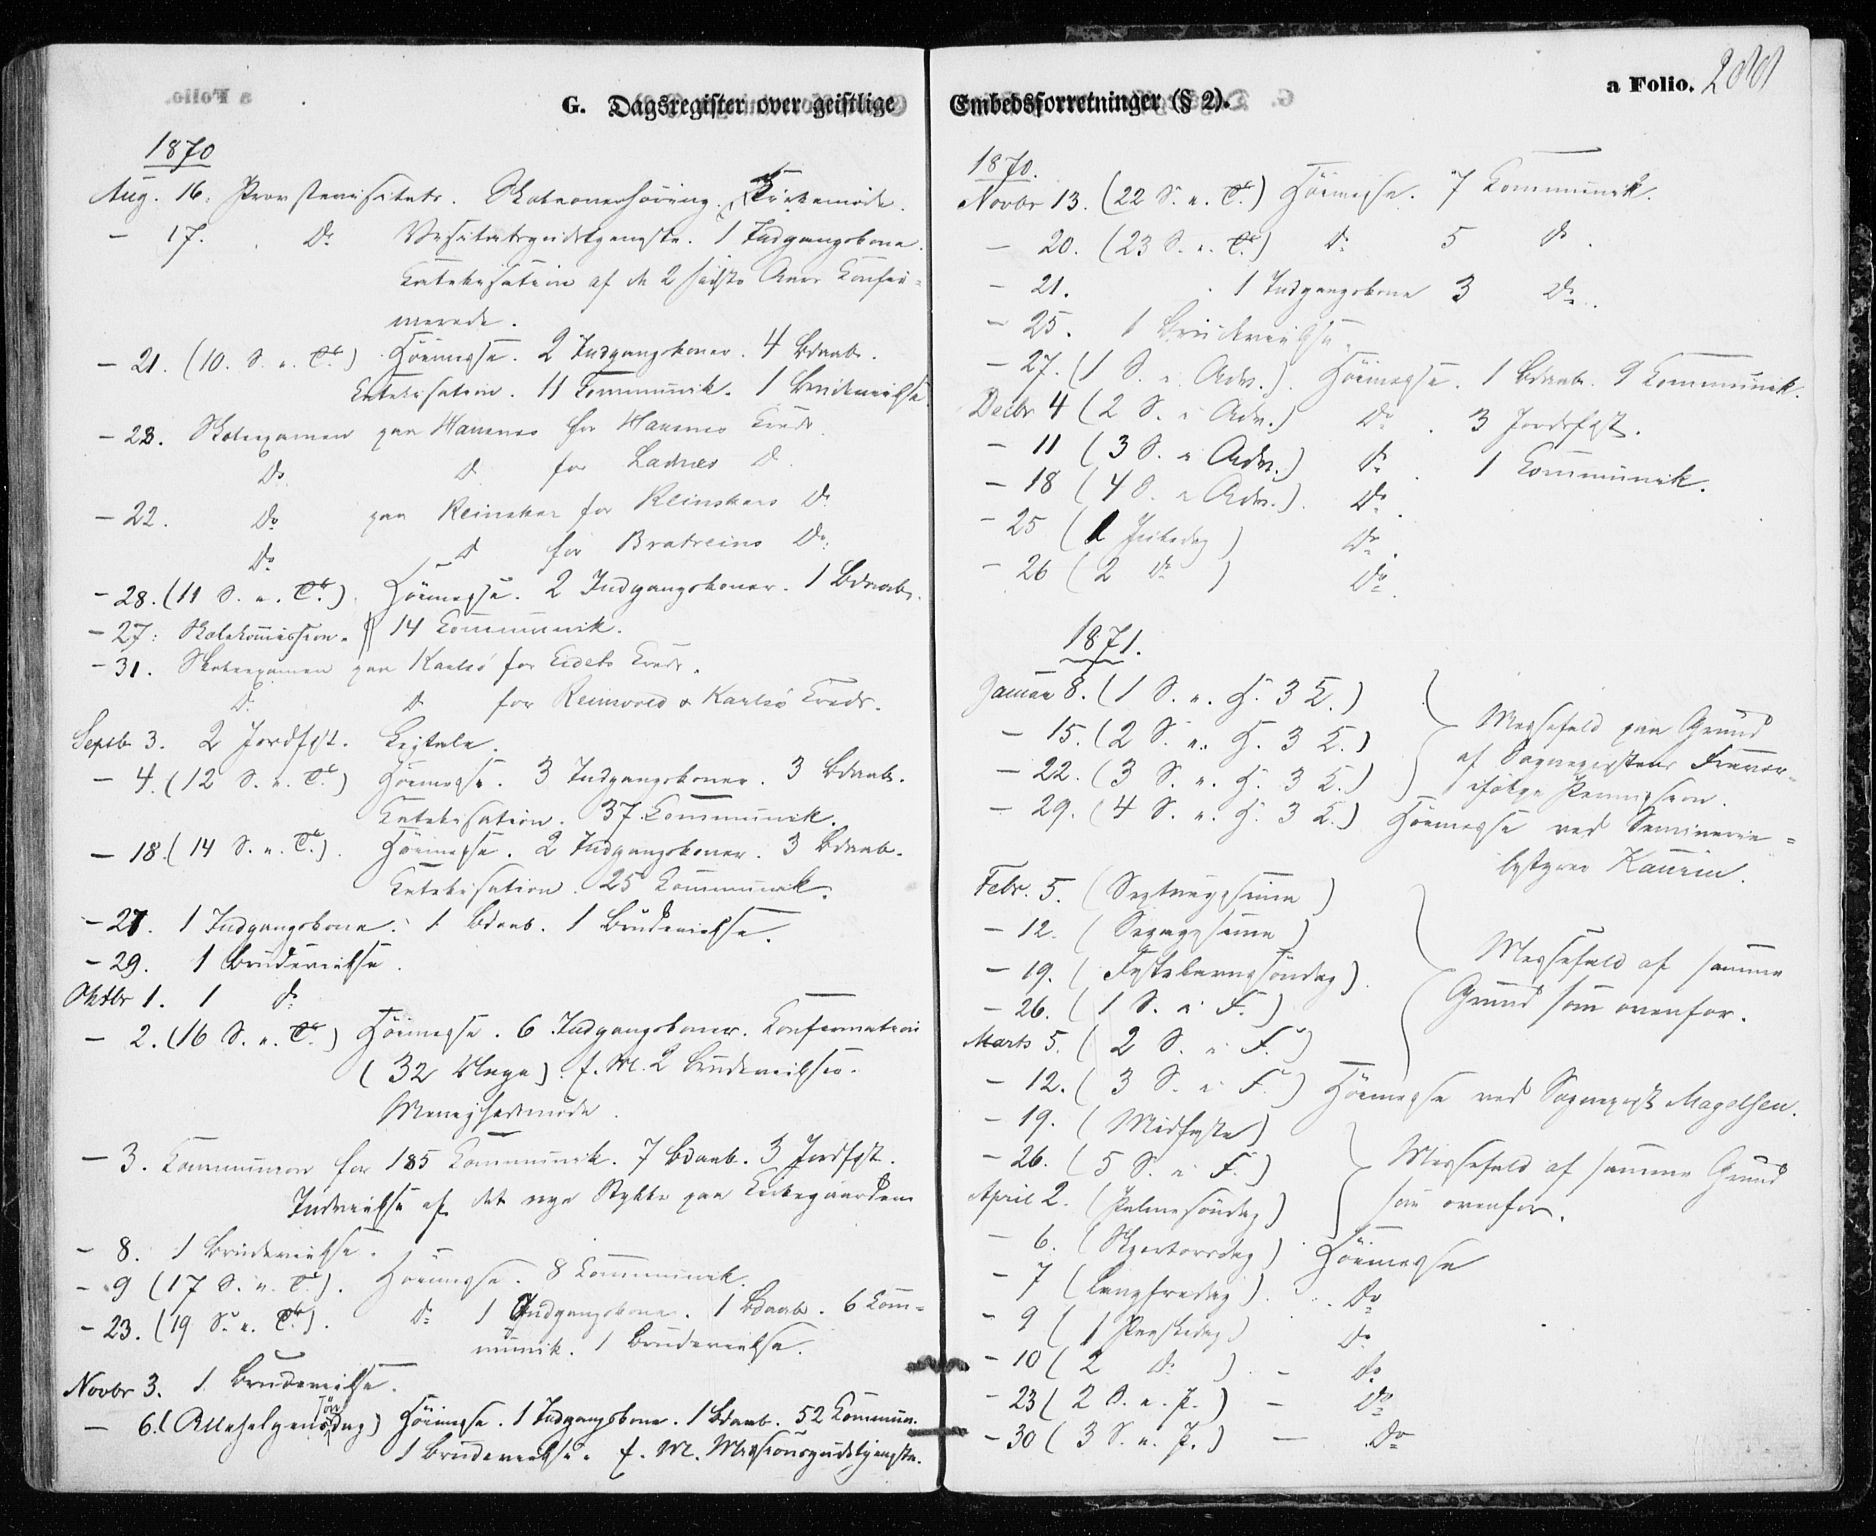 G. Dagsregister over geistlige
1870
Aug. 16. Provstevisitats. Skoleoverhøring. Kirkemøde.
— 17. Do Visitatsgudstjeneste. 1 Indgangskone.
Katekisation af de 2 sidste Aars Confir-
merede.
— 21. (10. S. e. Tr.) Høimesse. 2 Indgangskoner. 4 Bdaab.
Katekisation. 11 Communik. 1 Brudevielse.
— 23. Skoleexamen paa Hansnes for Hansnes Kreds
Do D. for Ladnes D.
— 22. Do paa Reinskar for Reinskars Do
Do D for Bratreins Do.
— 28. (11 S. e. Tr.). Høimesse. 2 Indgangskoner. 1 Bdaab.
— 27. Skolekomission. 14 Communik.
— 31. Skoleexamen paa Karlsø for Eidets Kreds.
D. D for Reinvold & Karlsø Kreds.
Septb 3. 2 Jordfst. Ligtale.
— 4. (12 S. e. Tr.) Høimesse. 3 Indgangskoner. 3 Bdaab.
Katekisation. 37 Communik.
— 18. (14 S. e. Tr.). Høimesse. 2 Indgangskoner. 3 Bdaab.
Katekisation. 25 Communik.
— 21. 1 Indgangskone. 1 Bdaab. 1 Brudevielse.
— 29. 1 Brudevielse.
Oktbr 1. 1 do
— 2. (16 S. e. Tr.) Høimesse. 6 Indgangskoner. Confirmation
(32 Unge). f. M. 2 Brudevielser.
Menighedsmøde.
— 3. Communion for 185 Communik. 7 Bdaab. 3 Jordfst.
Indvielse af det nye Stykke paa Kirkegaarden
— 8. 1 Brudevielse.
— 9 (17 S. e. Tr.). Høimesse. 8 Communik.
— 23. (19 S. e. Tr.). Do 1 Indgangskone. 1 Bdaab. 6 Com-
munik. 1 Brudevielse.
Novbr 3. 1 Brudevielse.
— 6. (Allehelgensøndag) Høimesse. 1 Indgangskone. 1 Bdaab. 52 Commun.
1 Brudevielse. f. M. Missionsgudstjeneste.
Embedsforretninger (§ 2).
a Folio. 288
1870.
Novbr 13. (22 S. e. Tr.) Høimesse. 7 Communik.
— 20. (23 S. e. Tr.) do 5 do.
— 21. 1 Indgangskone 3 Do.
— 25. 1 Brudevielse.
— 27. (1 S. i Adv.). Høimesse. 1 Bdaab. 9 Communik.
Decbr 4 (2 S. i Adv.) Do. 3 Jordfst.
— 11 (3 S. i Adv.) do. 1 Communik.
— 18 (4 S. i Adv.). Do.
— 25 (1 Juledag) Do.
— 26 (2 do) Do.
1871.
Januar 8. (1 S. e. H. 3 K.)
— 15. (2 S. e. H. 3 K.)
— 22. (3 S. e. H. 3 K.)
Messefald paa Grund
af Sognepræstens Fravær
ifølge Permission.
— 29. (4 S. e. H. 3 K.) Høimesse ved Seminarie-
bestyrer Kaurin.
Febr. 5. (Septuagesima)
— 12. (Sexagesima)
— 19. (Fastelavnssøndag).
— 26. (1 S. i F.)
Marts 5. (2 S. i F.)
Messefald af samme
Grund som ovenfor.
— 12. (3 S. i F.) Høimesse ved Sognepræst Magelssen.
— 19. (Midfaste)
— 26. (5 S. i F.)
April 2. (Palmesøndag)
Messefald af samme Grund
som ovenfor.
— 6. (Skjærtorsdag). Høimesse
— 7 (Langfredag). Do
— 9 (1 Paaskedag) do
— 10 (2 do). — do
— 23 (2 S. e. P.) — Do
— 30 (3 S. e. P.) — Do